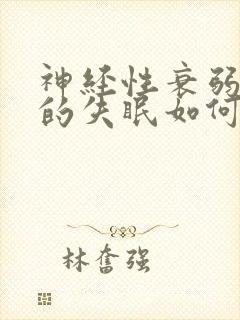 神经性衰弱
的失眠如何
林奮强